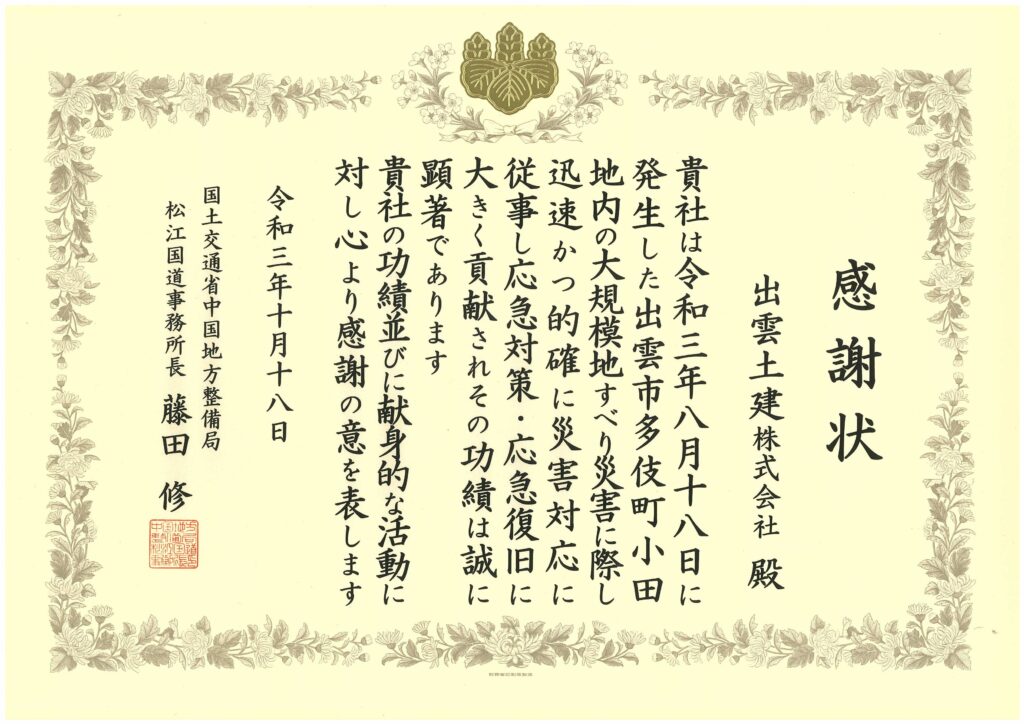 感謝状
出雲土建株式会社 殿
貴社は令和三年八月十八日に
発生した出雲市多伎町小田
地内の大規模地すべり災害に際し
迅速かつ的確に災害対応に
従事し応急対策・応急復旧に
大きく貢献されその功績は誠に
顕著であります
貴社の功績並びに献身的な活動に
対し心より感謝の意を表します
令和三年十月十八日
国土交通省中国地方整備局
松江国道事務所長 藤田 修